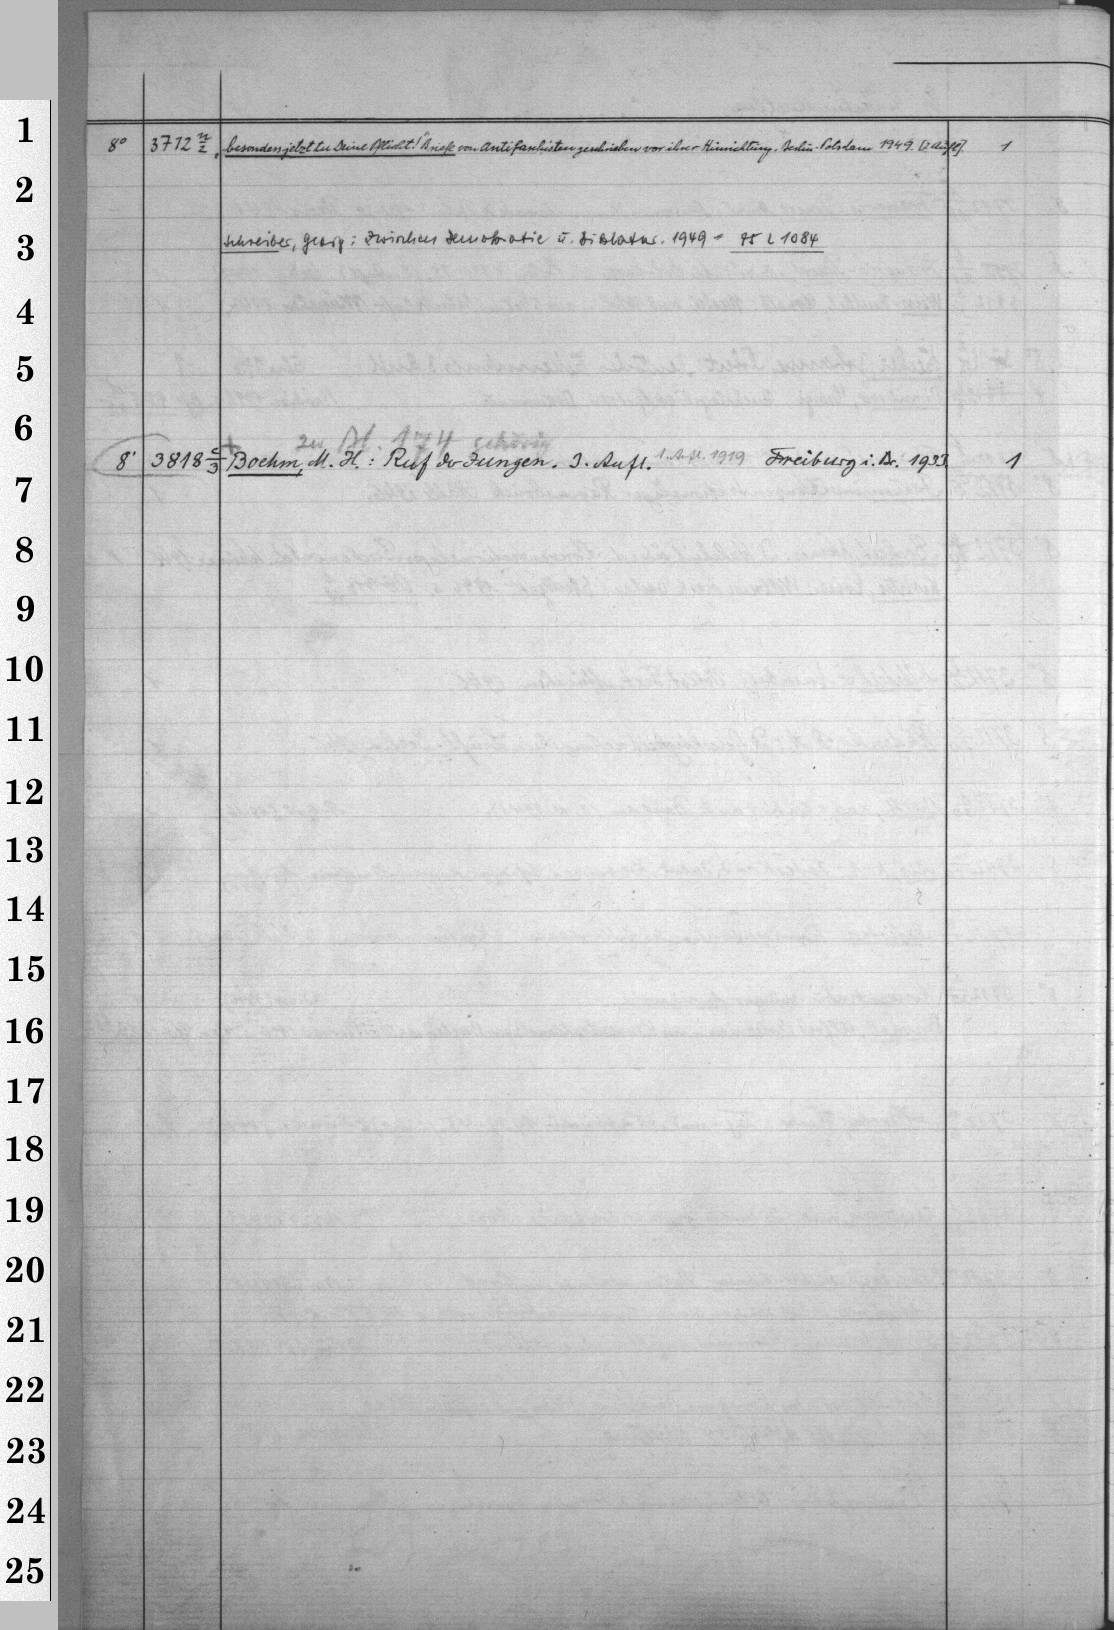 1
8° 3712 n/2 „besonders jetzt tu Deine Pflicht!" Briefe von Antifaschisten geschrieben vor ihrer Hinrichtung. Berlin-Potsdam 1949. (2. Aufl). 1
2
3
Schreiber, Georg: Zwischen Demokratie u. Diktatur. 1949 = 85 L 1084
4
5
6
zw. Bl. 174 gehörig
8° 3818 c/3 + Boehm, M. H.: Ruf der Jungen. 3. Aufl. 1. Aufl. 1919 Freiburg i. Br. 1933. 1
7
8
9
10
11
12
13
14
15
16
17
18
19
20
21
22
23
24
25